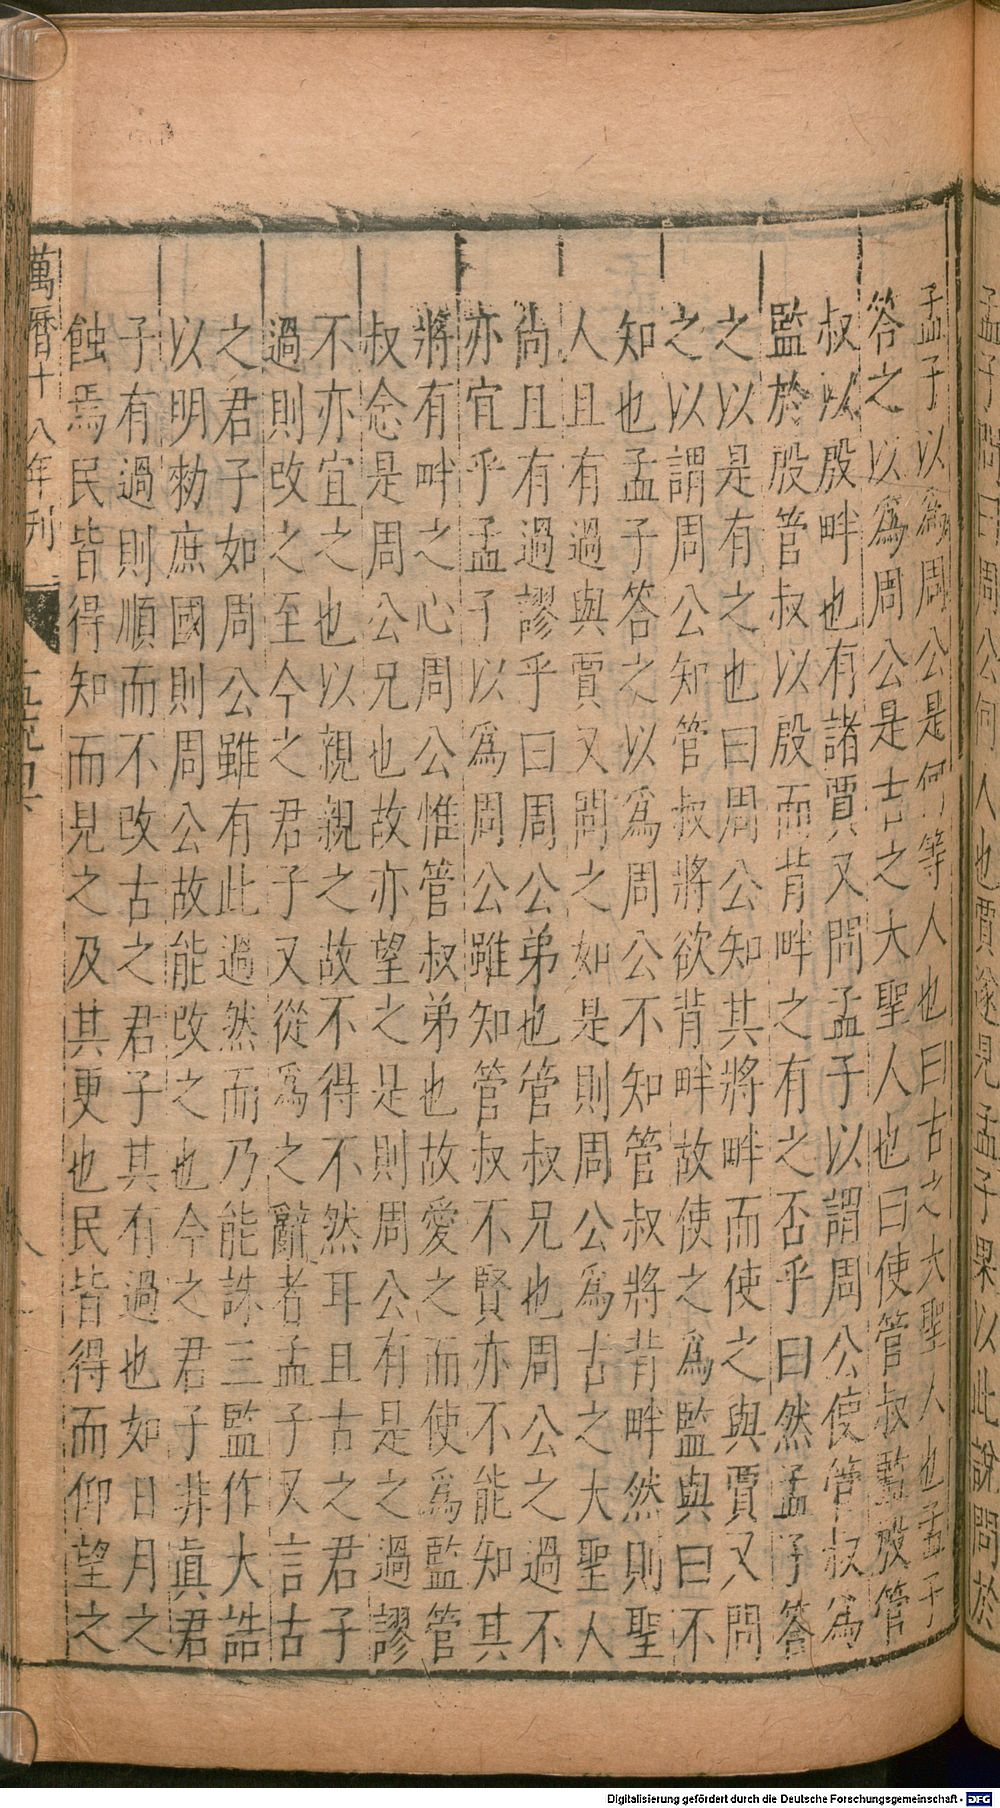 孟子問曰周公何人也賈遂見孟子果以此說問於
孟子以爲周公是何等人也曰古之大聖人也孟子
答之以爲周公是古之大聖人也曰使管叔監殷管
叔以殷畔也有諸賈又問孟子以謂周公使管叔爲
監於殷管叔以殷而背畔之有之否乎曰然孟子答
之以是有之也曰周公知其將畔而使之與賈又問
之以謂周公知管叔將欲背畔故使之爲監與曰不
知也孟子答之以爲周公不知管叔將背畔然則聖
人且有過與賈又問之如是則周公爲古之大聖人
尚且有過謬乎曰周公弟也管叔兄也周公之過不
亦宜乎孟子以爲周公雖知管叔不賢亦不能知其
將有畔之心周公惟管叔弟也故愛之而使爲監管
叔念是周公兄也故亦望之是則周公有是之過謬
不亦宜之也以親親之故不得不然耳且古之君子
過則改之至今之君子又從爲之辭者孟子又言古
之君子如周公雖有此過然而乃能誅三監作大誥
以明勑庶國則周公故能改之也今之君子非眞君
子有過則順而不改古之君子其有過也如日月之
蝕焉民皆得知而見之及其更也民皆得而仰望之
萬曆十八年刊
Digitalisierung gefördert durch die Deutsche Forschungsgemeinschaft - DFG